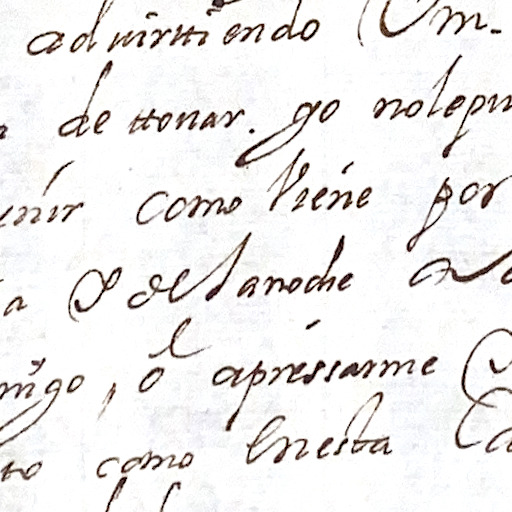 advirttiendo Um-
de ttonar. yo nolepu
enir como Viene por
a 8 de lanoche
migo, o apressarme
to como Enesta Ca